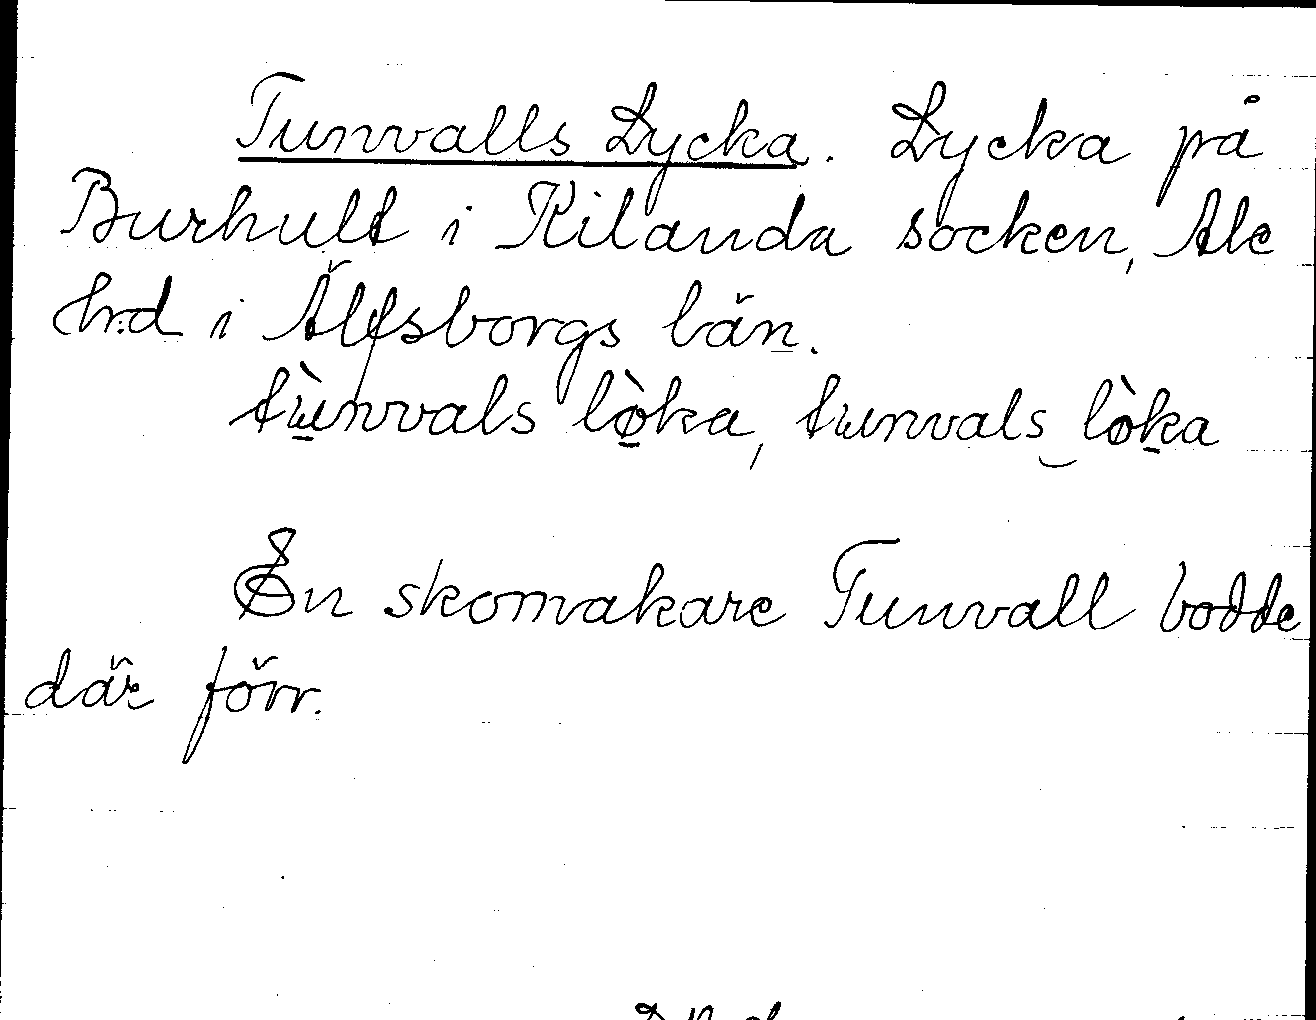 Tunvalls Lycka. Lycka på
Burhult i Kilanda socken, Ale
hrd i Älfsborgs län.
tùnvals lø̀ka, tunvals lø̀ka
En skomakare Tunvall bodde
där förr.